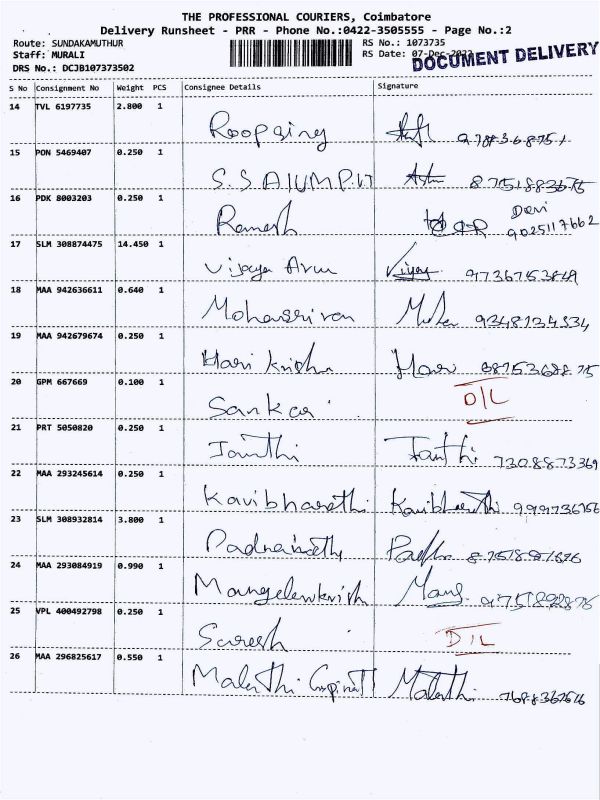 THE PROFESSIONAL COURIERS, Coimbatore
Delivery Runsheet - PRR - Phone No.:0422-3505555 - Page No.:2
Route: SUNDAKAMUTHUR RS No.: 1073735
Staff: MURALI RS Date: 07-Dec-2023
DOCUMENT DELIVERY
DRS No.: DCJB107373502
S No Consignment No Weight PCS Consignee Details Signature
14 TVL 6197735 2.800 1
Roopsing
15 PON 5469407 0.250 1
16 PDK 8003203 0.250 1
Ramesh Devi 9025117662
17 SLM 308874475 14.450 1
Vijaya Arun Vijay
18 MAA 942636611 0.640 1
19 MAA 942679674 0.250 1
Hari Krishna Hari
20 GPM 667669 0.100 1
Sankar D/L
21 PRT 5050820 0.250 1
Janthi Janthi 7308873369
22 MAA 293245614 0.250 1
Kavibharathi Kavibharathi
23 SLM 308932814 3.800 1
24 MAA 293084919 0.990 1
25 VPL 400492798 0.250 1
Suresh D/L
26 MAA 296825617 0.550 1
Malathi Malathi